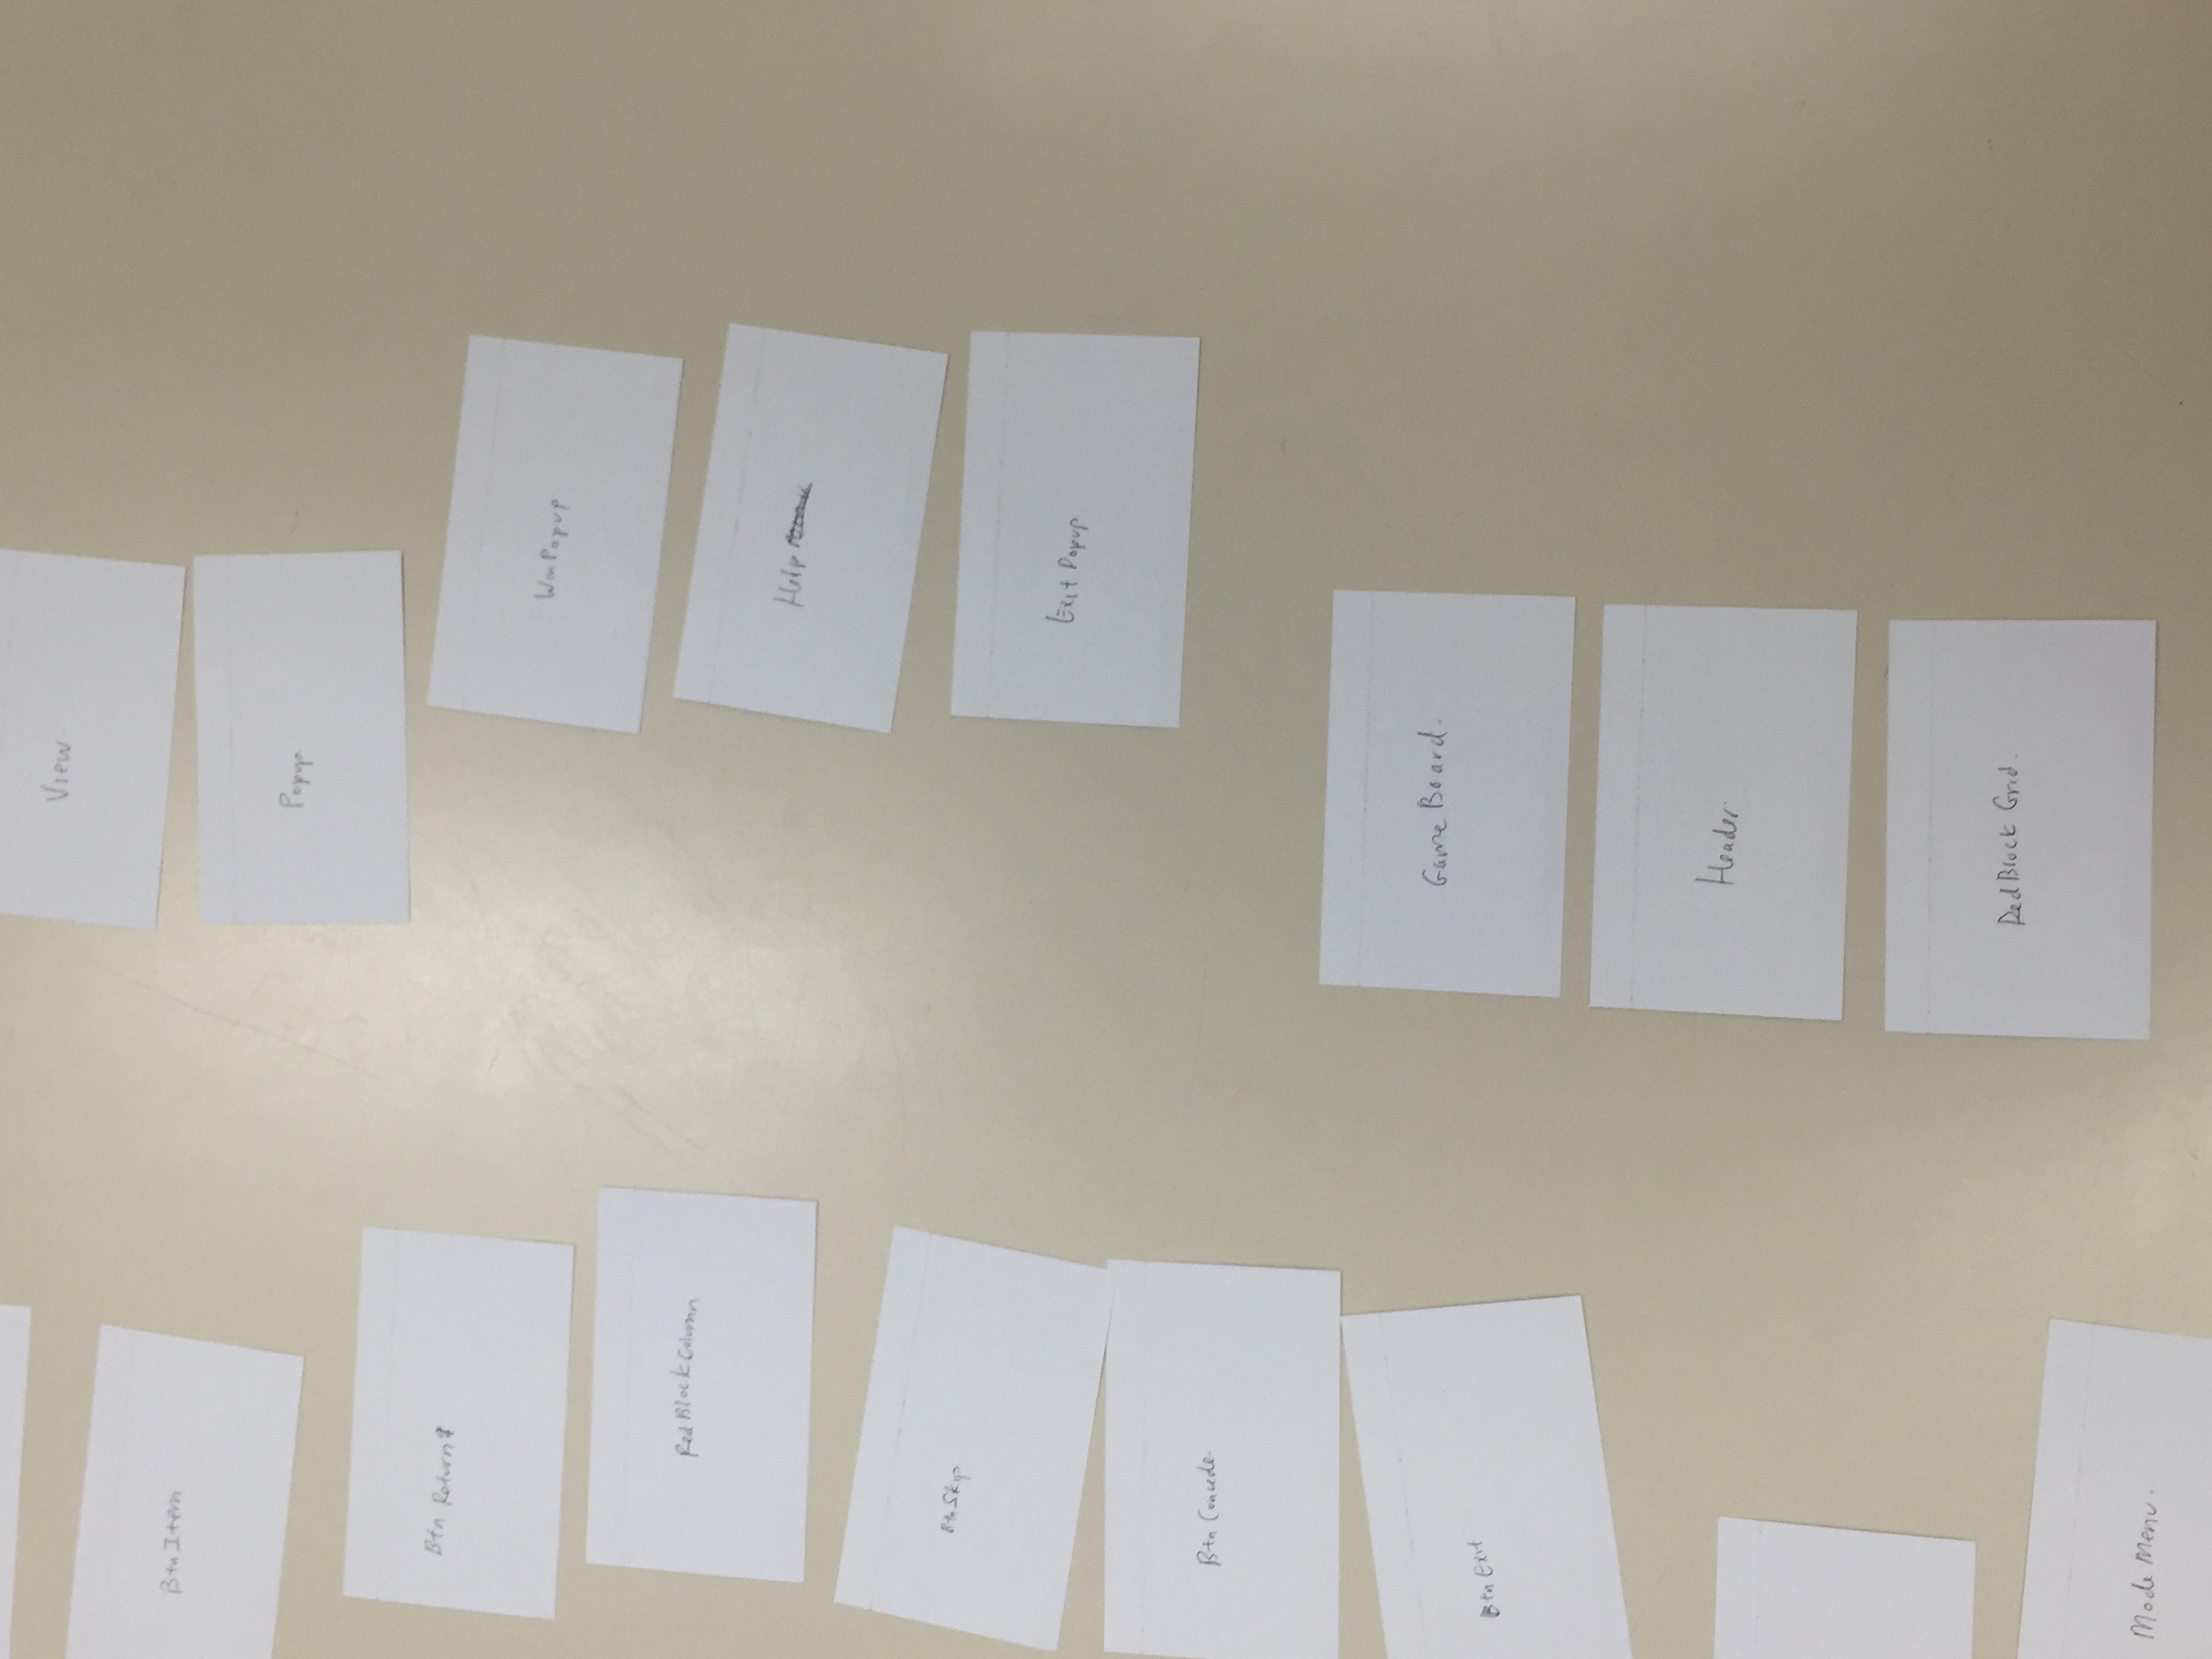 BtnItem
Btn Return
RedBlockColumn
BtnSkip
Btn Concede
Btn Exit
Mode Menu.
View
Popup
WinPopup
Help
Exit Popup
Game Board.
Header
RedBlock Grid.